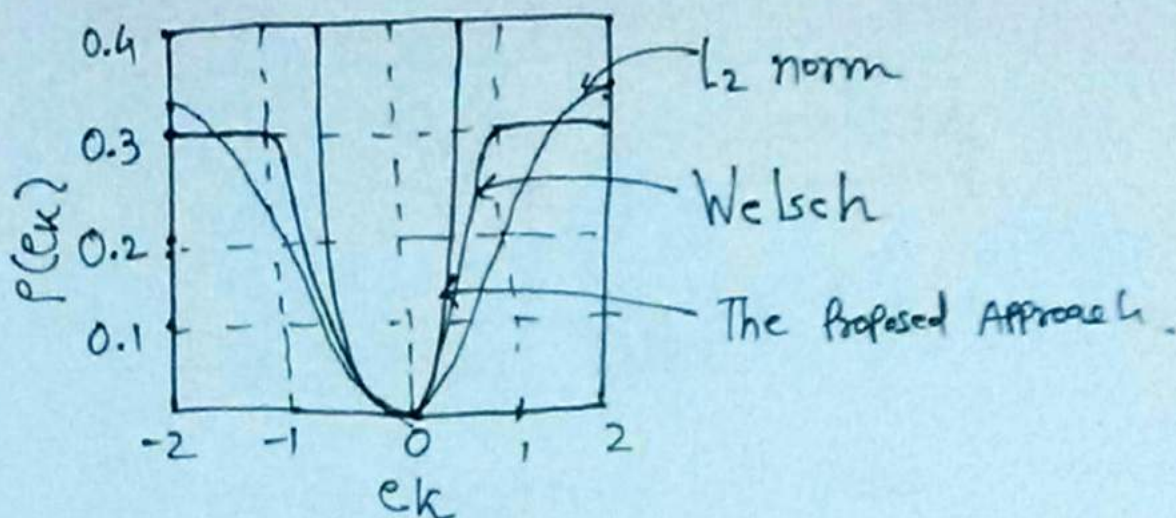 0.4
0.3
0.2
0.1
ρ(ek)
-2 -1 0 1 2
ek
l2 norm
Welsch
The Proposed Approach